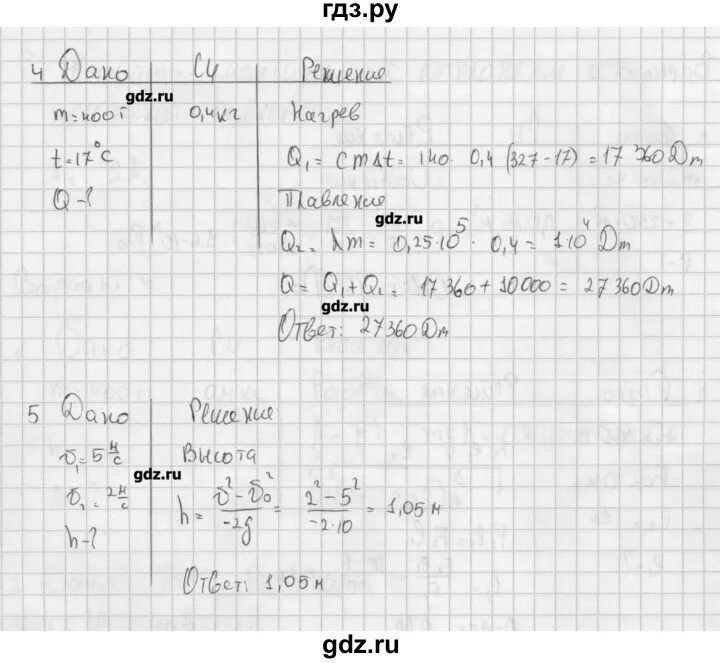 гдз.ру
4 Дано СИ Решение
gdz.ru
m=400г 0,4кг Нагрев
t=17°C Q₁ = cmΔt = 140 · 0,4 (327-17) = 17 360 Дж
Q-?
Плавление
gdz.ru
Q₂ = λm = 0,25·10⁵ · 0,4 = 1·10⁴ Дж
Q = Q₁ + Q₂ = 17 360 + 10 000 = 27 360 Дж
gdz.ru
Ответ: 27360 Дж
5 Дано Решение
υ₁ = 5 м/с Высота
gdz.ru
υ₂ = 2 м/с h = (υ² - υ₀²)/(-2g) = (2² - 5²)/(-2·10) = 1,05 м
h-?
Ответ: 1,05 м
gdz.ru